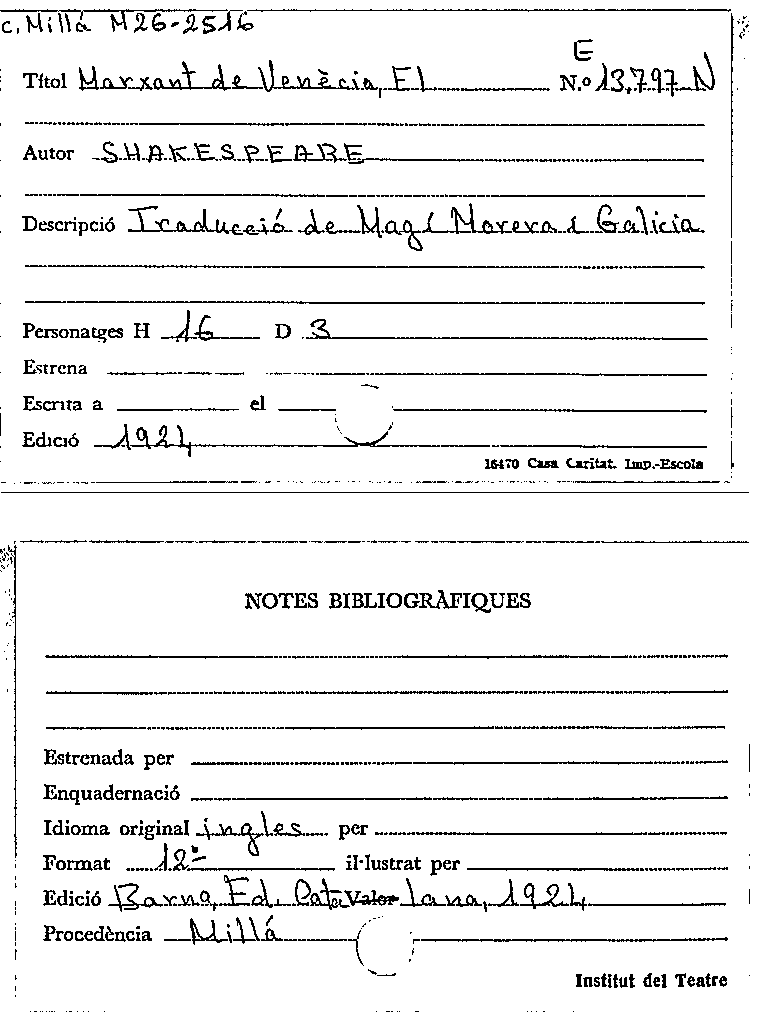 c. Millá M26-2516
E
Títol Marxant de Venècia, El N.º 13.797 N
Autor SHAKESPEARE
Descripció Traducció de Magí Morera i Galicia
Personatges H 16 D 3
Estrena
Escrita a el
Edició 1924
16470 Casa Caritat. Imp.-Escola
NOTES BIBLIOGRÀFIQUES
Estrenada per
Enquadernació
Idioma original ingles per
Format 12º il·lustrat per
Edició Barna, Ed. Cata Valor lana, 1924
Procedència Millá
Institut del Teatre